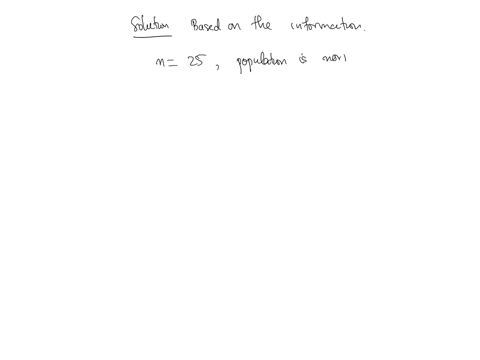 Solution Based on the information.
n = 25, population is nor